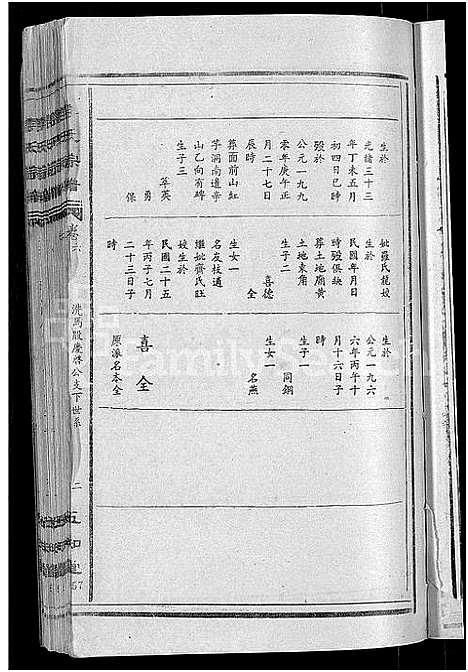 生於
光緒三十三
年丁未五月
初四日巳時
歿於
公元一九九
零年庚午正
月二十七日
辰時
葬面前山紅
字洞南邊辛
山乙向有碑
生子三
萃英
勇
保
妣羅氏龍姣
生於
民國年月日
時歿俱缺
葬土地腐黃
土地東角
生子二
喜德
全
生女一
名友枝適
繼妣齊氏旺
姣生於
民國二十五
年丙子七月
二十三日子
時
生於
公元一九六
六年丙午十
月十六日子
時
生子一
同鋼
生女一
名燕
喜全
原派名本全
卷六
洗馬股慶公支下世系
二
57